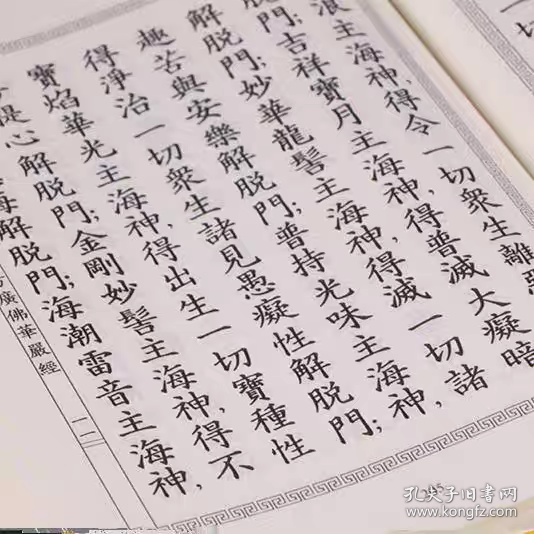 一切
浪主海神,得令一切衆生離惡
脱門;吉祥寶月主海神,得普滅大癡暗
解脱門;妙華龍髻主海神,得滅一切諸
趣苦與安樂解脱門;普持光味主海神,
得淨治一切衆生諸見愚癡性解脱門;
寶焰華光主海神,得出生一切寶種性
提心解脱門;金剛妙髻主海神,得不
海解脱門;海潮雷音主海神,
方廣佛華嚴經
孔夫子旧书网
www.kongfz.com